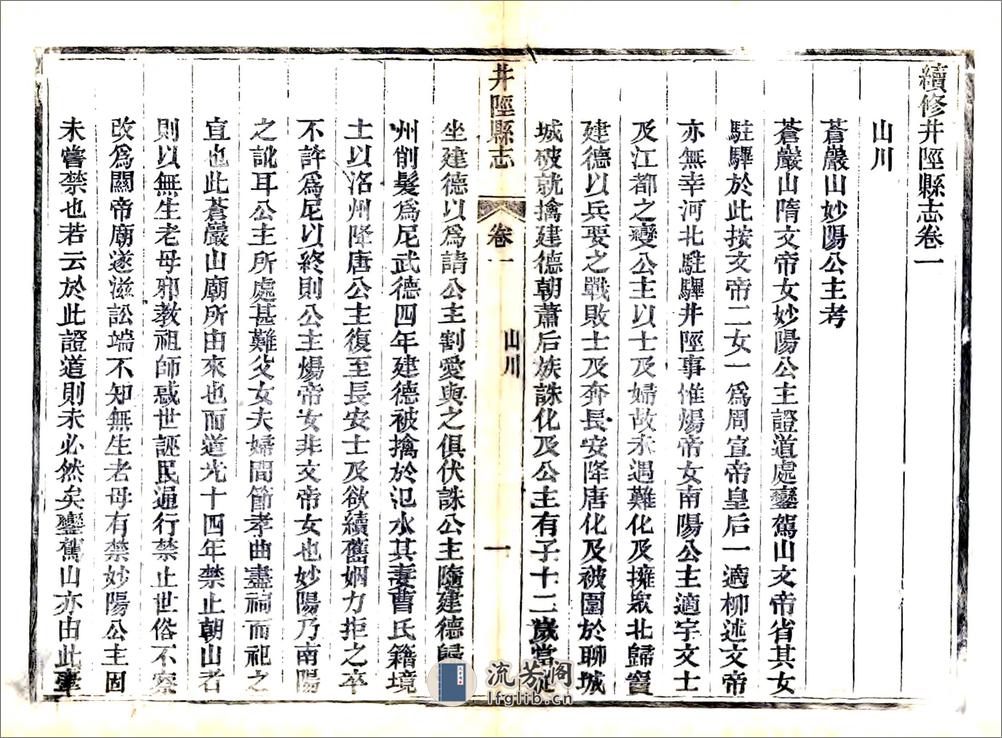 續修井陘縣志卷一
山川
蒼巖山妙陽公主考
蒼巖山隋文帝女妙陽公主證道處鑾駕山文帝省其女
駐驆於此按文帝二女一爲周宣帝皇后一適柳述文帝
亦無幸河北駐驆井陘事惟煬帝女南陽公主適宇文士
及江都之變公主以士及婦故亦遇難化及擁眾北歸竇
建德以兵要之戰敗士及奔長安降唐化及被圍於聊城
城破就擒建德朝蕭后族誅化及公主有子十二歲當從
坐建德以爲請公主割愛與之俱伏誅公主隨建德歸
州削髮爲尼武德四年建德被擒於氾水其妻曹氏籍境
土以洺州降唐公主復至長安士及欲續舊姻力拒之卒
不許爲尼以終則公主煬帝女非文帝女也妙陽乃南陽
之訛耳公主所處甚難父女夫婦間節孝曲盡祠而祀之
宜也此蒼巖山廟所由來也而道光十四年禁止朝山者
則以無生老母邪教祖師惑世誣民通行禁止世俗不察
改爲關帝廟遂滋訟端不知無生老母有禁妙陽公主固
未嘗禁也若云於此證道則未必然矣鑾駕山亦由此牽
井陘縣志
卷一
山川
一
流芳阁
lfglib.cn